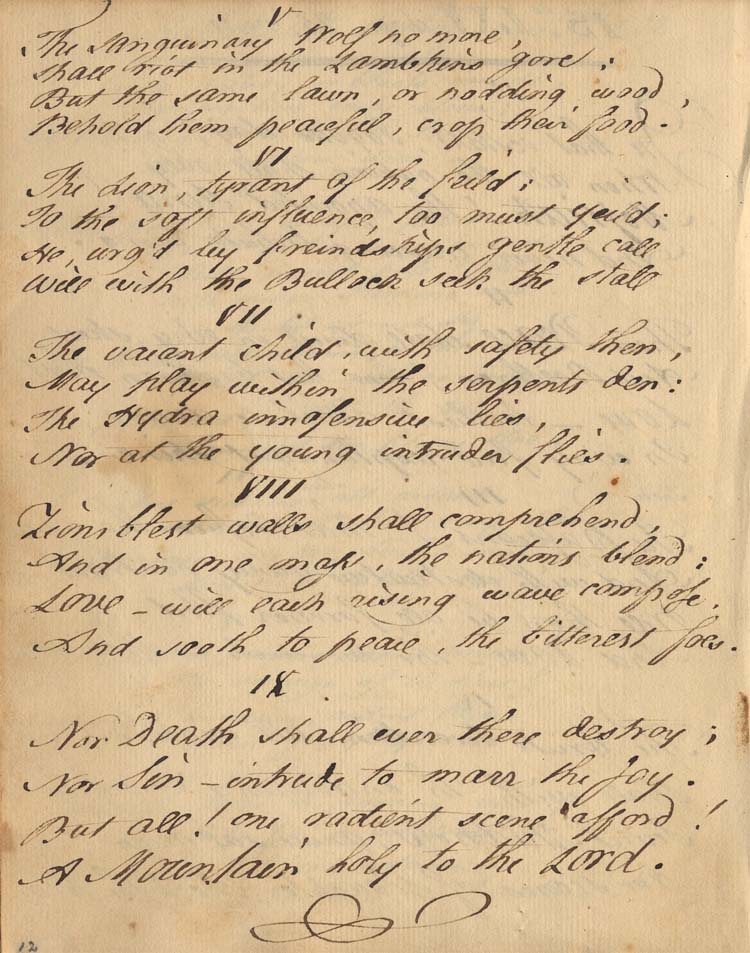 V
The sanguinary Wolf no more,
shall riot in the Lambkins gore;
But the same lawn, or nodding wood,
Behold them peaceful, crop their food.
VI
The Lion, tyrant of the feild;
To the soft influence, too must yeild;
He, urg'd by freindships gentle call
will with the Bullock seek the stall
VII
The vacant child, with safety then,
May play within the serpents den:
The Hydra innofensive lies,
Nor at the young intruder flies.
VIII
Zions blest walls shall comprehend,
And in one maſs, the nations blend;
LOVE – will each rising wave compoſe,
And sooth to peace, the bitterest foes.
IX
Nor Death shall ever there destroy;
Nor Sin – intrude to marr the Joy.
But all! one radient scene afford!
A Mountain holy to the Lord.
12